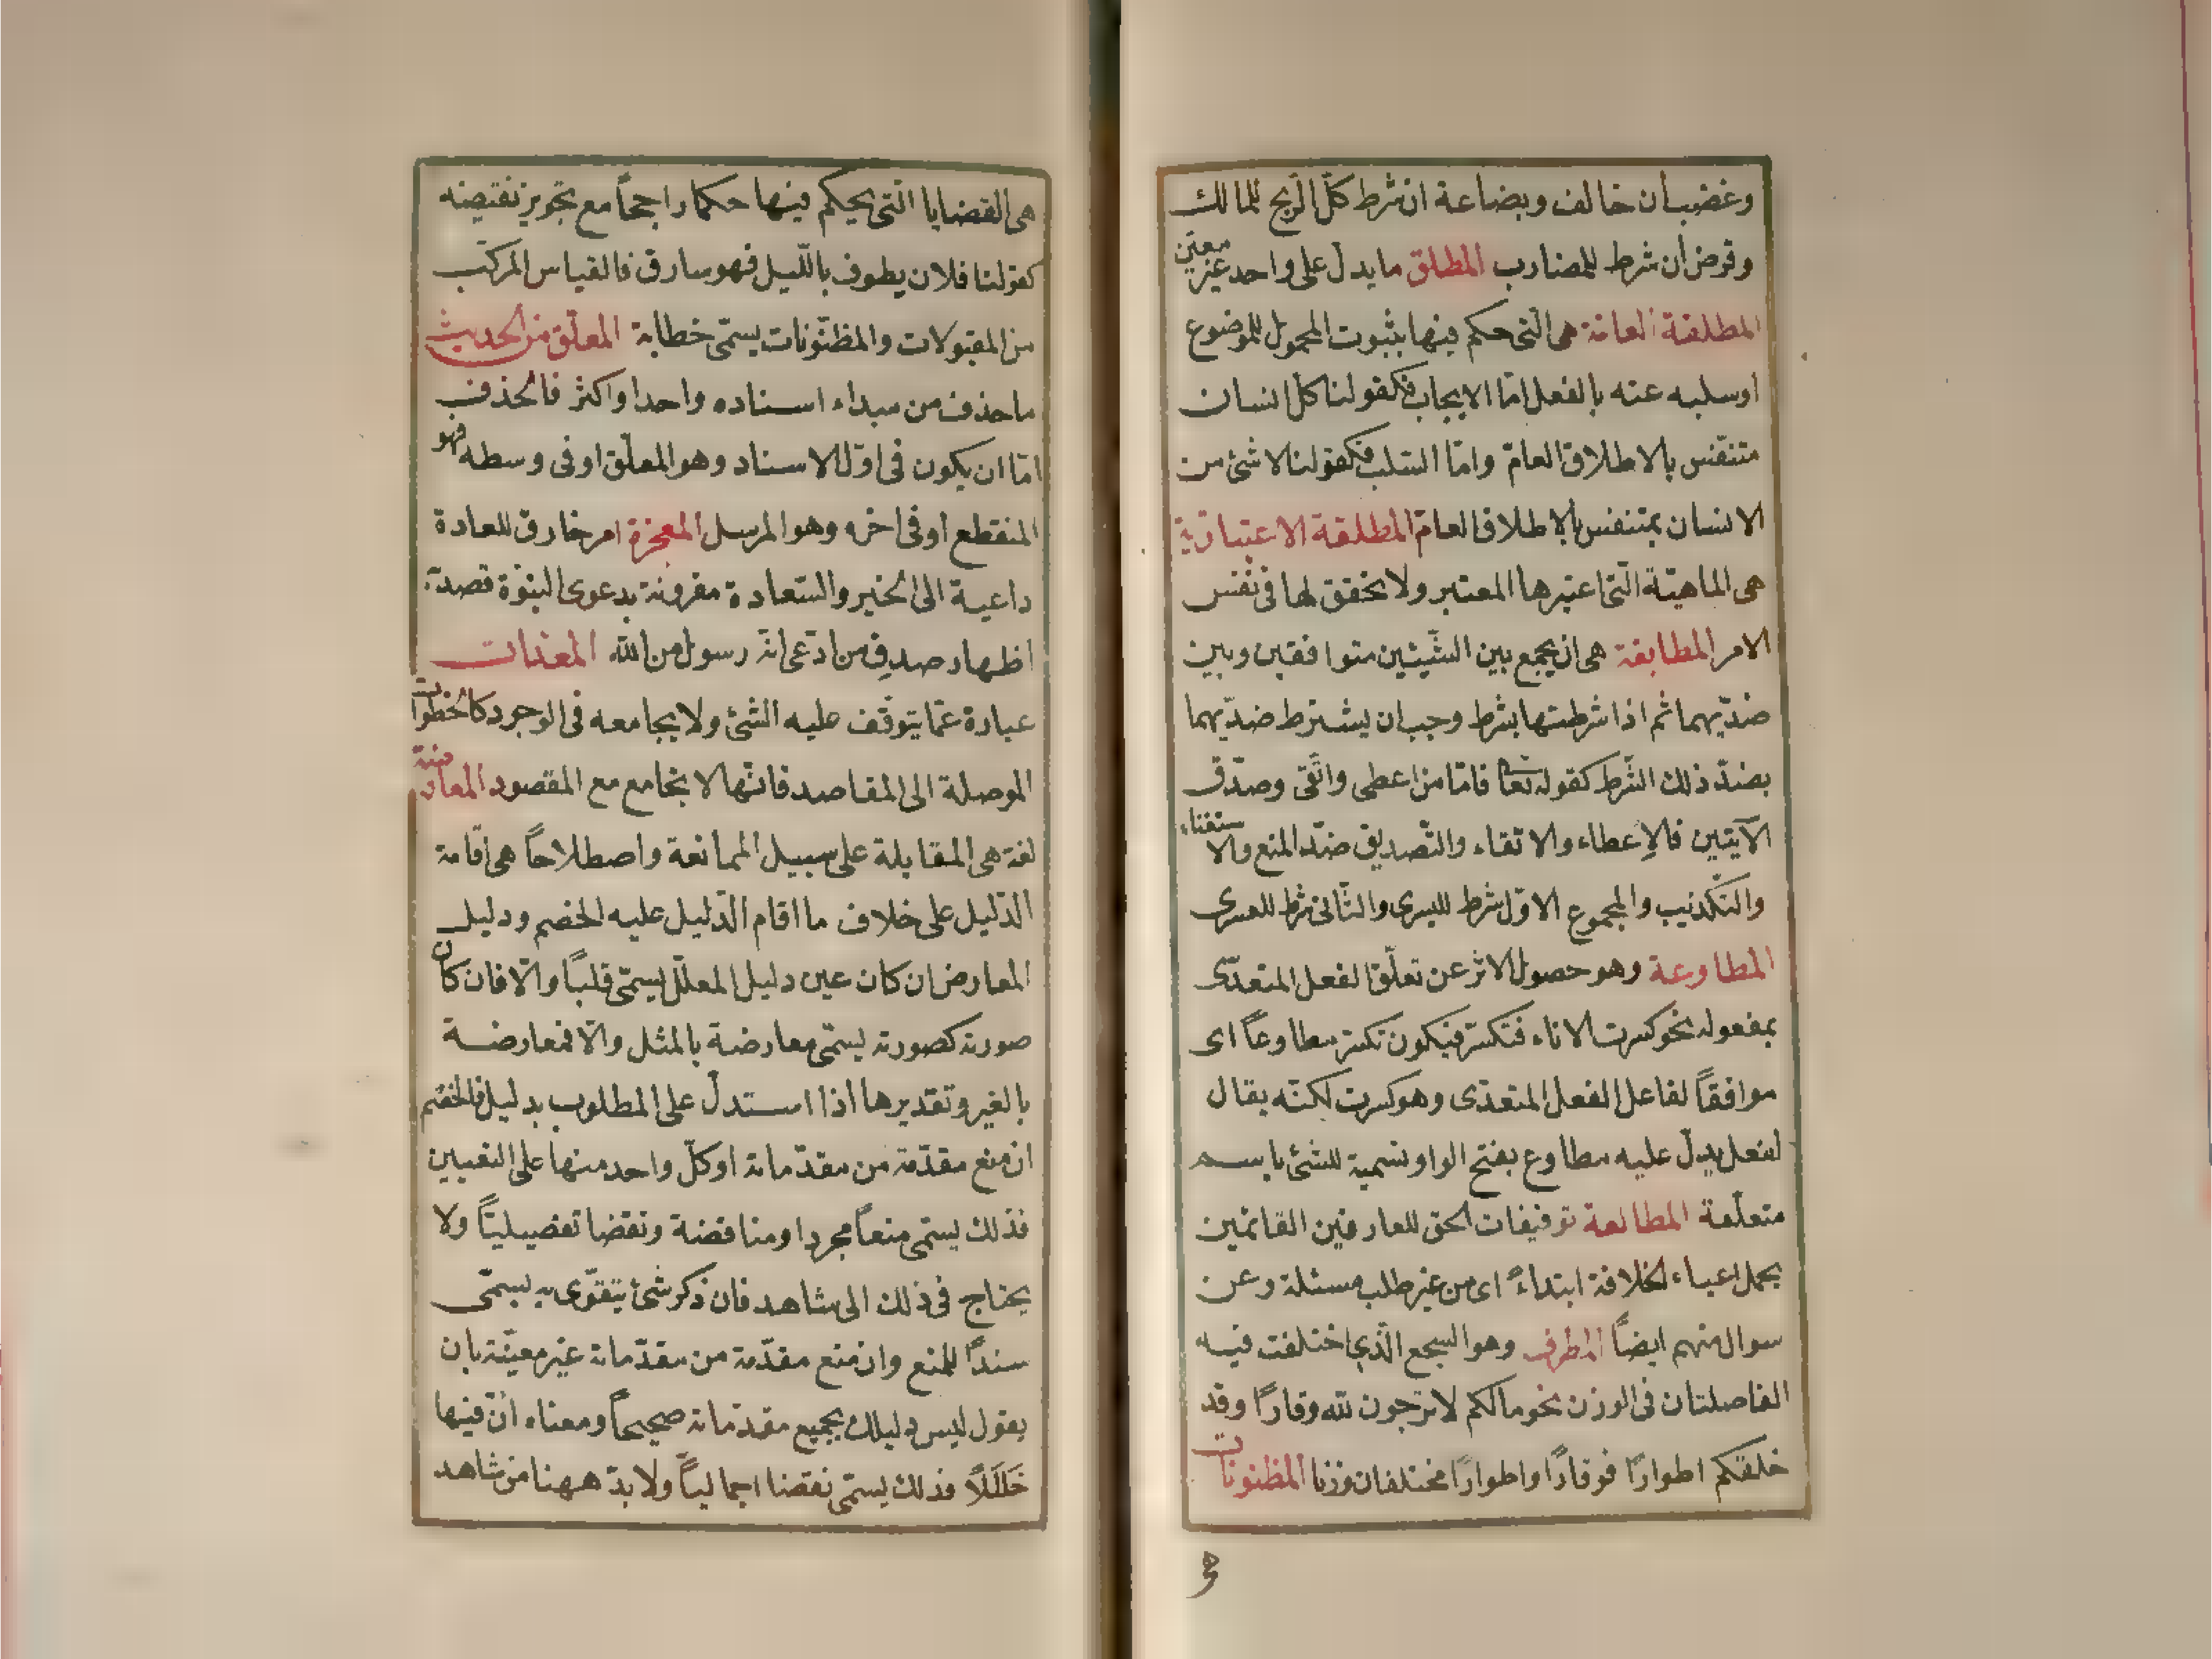 وغضب أن خالف وبضاعة ان شرط كلّ الربح للمالك
وقرض أن شرط للمضارب المطلق ما يدل على واحد غير معيّن
المطلقة العامّة هى الّتى حكم فيها بثبوت المحمول للموضوع
اوسلبه عنه بالفعل امّا الايجاب فكقولنا كلّ انسان
متنفّس بالاطلاق العامّ وامّا السّلب فكقولنا لا شئ من
الانسان بمتنفّس بالاطلاق العامّ المطلقة الاعتباريّة
هى الماهيّة الّتى اعتبرها المعتبر ولا تحقق لها فى نفس
الامر المطابقة هى ان يجمع بين الشّيئين متوافقين وبين
ضدّيهما ثم اذا شرطتها بشرط وجب ان يشترط ضدّيهما
بضدّ ذلك الشّرط كقوله تعا فامّا من اعطى واتّقى وصدّق
الآيتين فالإعطاء والاتقاء والتّصديق ضدّ المنع والاستغناء
والتّكذيب والمجموع الاوّل شرط لليسرى والثّانى شرط للعسرى
المطاوعة وهو حصول الاثر عن تعلّق الفعل المتعدّى
بمفعوله نحو كسرت الاناء فتكسّر فيكون تكسّر مطاوعاً اى
موافقاً لفاعل الفعل المتعدّى وهو كسرت لكنّه يقال
لفعل يدلّ عليه مطاوع بفتح الواو تسمية للشئ باسم
متعلّقة المطالعة توفيقات الحق للعارفين القائمين
بحمل اعباء الخلافة ابتداءً اى من غير طلب مسئلة وعن
سوال منهم ايضاً المطرف وهو السجع الّذى اختلفت فيه
الفاصلتان فى الوزن نحو مالكم لا ترجون للّه وقارًا وقد
خلقكم اطوارًا فوقارًا واطوارًا مختلفان وزنا المظنونات
هى
هى القضايا الّتى يحكم فيها حكما راجحاً مع تجويز نقيضه
كقولنا فلان يطوف بالّليل فهو سارق فالقياس المركّب
من المقبولات والمظنّونات يسمّى خطابة المعلّق من الحديث
ما حذف من مبداء اسناده واحد اواكثر فالحذف
امّا ان يكون فى اوّل الاسناد وهو المعلّق او فى وسطه فهو
المنقطع او فى اخره وهو المرسل المعجزة امر خارق للعادة
داعية الى الخير والسّعادة مقرونة بدعوى النبوّة قصد به
اظهار صدق من ادّعى انّه رسول من اللّه المعدات
عبارة عمّا يتوقّف عليه الشئ ولا يجامعه فى الوجود كالخطوات
الموصلة الى المقاصد فانّها لا تجامع مع المقصود المعارضة
لغة هى المقابلة على سبيل الممانعة واصطلاحاً هى اقامة
الدّليل على خلاف ما اقام الدّليل عليه الخصم ودليل
المعارض ان كان عين دليل المعلّل يسمّى قلباً والّا فان كان
صورته كصورته يسمّى معارضة بالمثل والّا فمعارضة
بالغير وتقديرها اذا استدلّ على المطلوب بدليل فالخصم
ان منع مقدّمة من مقدّماته او كلّ واحد منها على التعيين
فذلك يسمّى منعاً مجردا ومناقضة ونقضا تفصيليّاً ولا
يحتاج فى ذلك الى شاهد فان ذكر شئ يتقوّى به يسمّى
سنداً للمنع وان منع مقدّمة من مقدّماته غير معيّنة بان
يقول ليس دليلك بجميع مقدّماته صحيحاً ومعناه انّ فيها
خَللاً فذلك يسمّى نقضا اجماليّاً ولا بدّ ههنا من شاهد